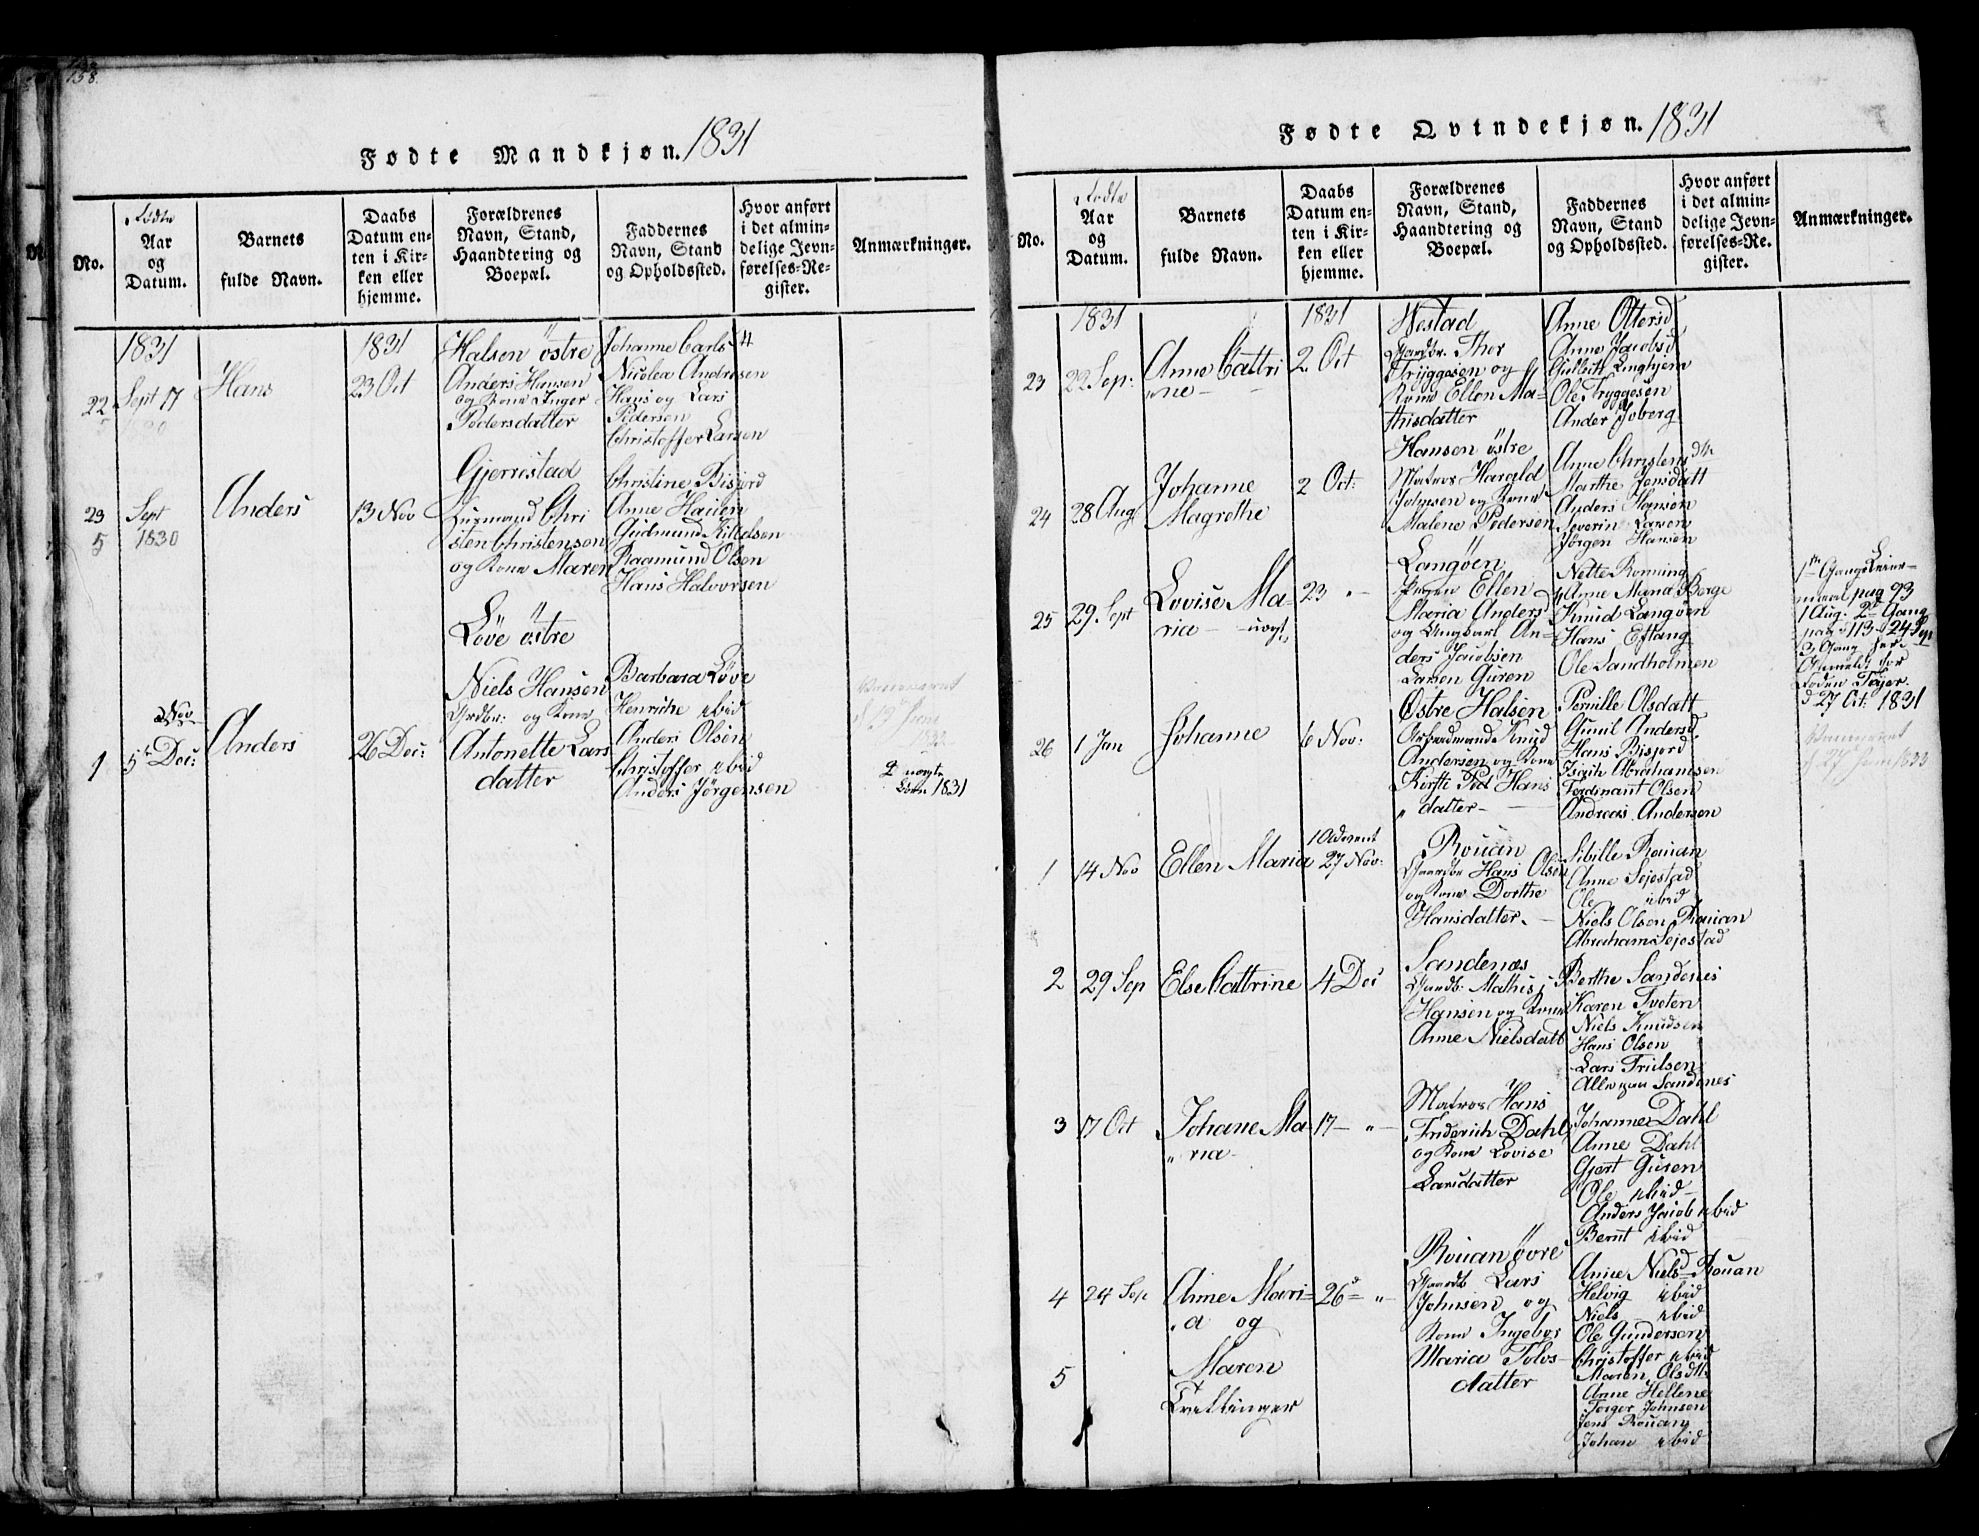 158.
Fødte Mandkjøn. 1831
No.
Fødte
Aar
og
Datum.
Barnets
fulde Navn.
Daabs
Datum en-
ten i Kir-
ken eller
hjemme.
Forældrenes
Navn, Stand,
Haandtering og
Boepæl.
Faddernes
Navn, Stand
og Opholdssted.
Hvor anført
i det almin-
delige Jevn-
førelses-Re-
gister.
Anmærkninger.
1831
22
Sept 17
Hans
1831
23 Oct
Halsen östre
Anders Hansen
og Kone Inger
Pedersdatter
Johanne Carls
Nicolea Andresen
Hans og Lars
Pedersen
Christoffer Larsen
23
5
Sept
1830
Anders
13 Nov
Gjerrestad
Chri
sten Christensen
og Kone Maren
Christine Bisjord
Anne Hauen
Gudmund Kittelsen
Raamund Olsen
Hans Halvorsen
1
Nov
5t Dec:
Anders
26 Dec:
Löve östre
Niels Hansen
Grdbr: og Kone
Antonette Lars
datter
Barbara Löve
Henriche ibid
Anders Olsen
Christoffer ibid
Anders Jörgensen
2 uægte
Börn 1831
Fødte Qvindekjøn. 1831
No.
Fødte
Aar
og
Datum.
Barnets
fulde Navn.
Daabs
Datum en-
ten i Kir-
ken eller
hjemme.
Forældrenes
Navn, Stand,
Haandtering og
Boepæl.
Faddernes
Navn, Stand
og Opholdssted.
Hvor anført
i det almin-
delige Jevn-
førelses-Re-
gister.
Anmærkninger.
1831
23
22 Sep:
Anne Cattri
ne
1831
2 Oct
Westad
Gaardbr. Thor
Tryggesen og
Kone Ellen Ma-
thisdatter
Anne Ottersd
Anne Jacobsd
Gulbrit Linghjem
Ole Tryggesen
Ander Joberg
24
28 Aug
Johanne
Magrethe
2 Oct:
Hansen östre
Matros Harald
Johnsen og Kone
Malene Pedersen
Anne Christensdtr
Marthe Jensdatt
Anders Hansen
Severin Larsen
Jörgen Hansen
25
29. Sept
Lovise Ma-
ria - uægt
23 "
Langöen
Pigen Ellen
Maria Andersd
og Ungkarl An-
ders Jacobsen
Larsen Guren
Nette Rönning
Anne Maria Berge
Knud Langöen
Hans Eftang
Ole Sandholmen
1te Gangs Leier-
maal pag 93
1 Aug. 2d Gang
pag 113 - 24 Sep
3 Gang her.
Anmeldt for
Foden Töjer
d 27 Oct: 1831
26
1 Jan
Johanne
6 Nov:
Østre Halsen
Arbeidmand Knud
Andersen og Kone
Kirsti Ped Hans
datter
Pernille Olsdatt
Gunil Andersd.
Hans Bisjord
Isach Abrahamsen
Ferdinant Olsen
Andreas Andersen
d 27 Juni 1833
1
14 Nov
Ellen Maria
1 Advent
27 Nov:
Rouan
Gaardbr Hans Olsen
og Kone Dorthe
Hansdatter.
Sibille Rouan
Anne Sejestad
Ole ibid
Niels Olsen Rouan
Abraham Sejestad
2
29 Sep
Else Cattrine
4 Dec
Sandenæs
Gaardb: Mathis
Hansen og Kone
Anne Nielsdatt
Berthe Sandenes
Karen Tveten
Niels Knudsen
Hans Olsen
Lars Trulsen
Alle paa Sandenes
3
17 Oct
Johane Ma-
ria
17 "
Matros Hans
Friderich Dahl
og Kone Lovise
Larsdatter
Johanne Dahl
Anne Dahl
Gjert Gusen
Ole ibid
Anders Jacob ibid
Bernt ibid
4
24 Sep
Anne Mari-
a og
26 "
Rouan övre
Gaardb Lars
Johnsen og
Kone Ingebor
Maria Tolvs-
datter
Anne Nielsd Rouan
Helvig ibid
Niels ibid
Ole Gundersen
Christoffer ibid
Maren Olsdtt:
Anne Hellene
Torger Johnsen
Jens Rouan
Johan ibid
5
Maren
Tvillinger